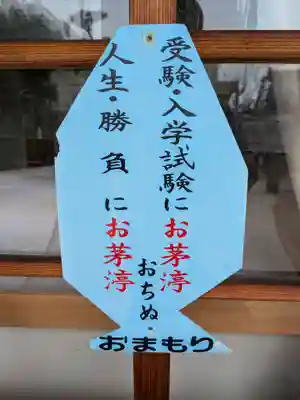 受験・入学試験にお茅渟
人生・勝負にお茅渟
おちぬ・
おまもり